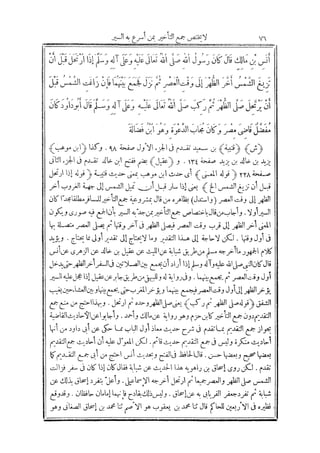 ٧٦ لا يختص جمع التأخير بمن أسرع به السير
أَنَسِ بْنِ مَالِكٍ قَالَ كَانَ رَسُولُ اللهِ صَلَّى اللهُ تَعَالَى عَلَيْهِ وَعَلَى آلِهِ وَسَلَّمَ إِذَا ارْتَحَلَ قَبْلَ أَنْ
تَزِيغَ الشَّمْسُ أَخَّرَ الظُّهْرَ إِلَى وَقْتِ الْعَصْرِ ثُمَّ نَزَلَ فَجَمَعَ بَيْنَهُمَا فَإِنْ زَاغَتِ الشَّمْسُ قَبْلَ
أَنْ يَرْتَحِلَ صَلَّى الظُّهْرَ ثُمَّ رَكِبَ صَلَّى اللهُ تَعَالَى عَلَيْهِ وَعَلَى آلِهِ وَسَلَّمَ قَالَ أَبُو دَاوُدَ كَانَ
مُفَضَّلٌ قَاضِيَ مِصْرَ وَكَانَ مُجَابَ الدَّعْوَةِ وَهُوَ ابْنُ فَضَالَةَ
(ش) (قتيبة) بن سعيد تقدم فى الجزء الأول صفحة ٩٨ . وكذا (ابن موهب)
يزيد بن خالد بن يزيد صفحة ١٣٤ . و (عقيل) بضم ففتح ابن خالد تقدم فى الجزء الثانى
صفحة ٢٢٨ (قوله المعنى) أى حدث ابن موهب بمعنى حديث قتيبة (قوله إذا ارتحل
قبل أن تزيغ الشمس الخ) يعنى إذا سار قبل أن تميل الشمس إلى جهة الغروب أخر
الظهر إلى وقت العصر (واستدل) بظاهره من قال بمشروعية جمع التأخير للمسافر مطلقا جد كان
السير أولا . وأجاب من قال باختصاص جمع التأخير بمن جد به السير بأن الجمع فيه صورى ويكون
المعنى أخر الظهر إلى قرب وقت العصر فيصلى الظهر فى آخر وقتها ثم يصلى العصر متصلة بها
فى أول وقتها . لكن لا حاجة إلى هذا التقدير وما لا يحتاج إلى تقدير أولى مما يحتاج . ويؤيد
كلام الجمهور ما أخرجه مسلم من طريق شبابة عن الليث عن عقيل بن خالد عن الزهرى عن أنس
قال كان النبى صلى الله عليه وآله وسلم إذا أراد أن يجمع بين الصلاتين فى السفر أخر الظهر حتى يدخل
أول وقت العصر ثم يجمع بينهما . وفى رواية له من طريق جابر عن عقيل إذا عجل عليه السير
يؤخر الظهر إلى أول وقت العصر فيجمع بينهما ويؤخر المغرب حتى يجمع بينها وبين العشاء حين يغيب
الشفق (قوله صلى الظهر ثم ركب) يعنى صلى الظهر وحده ثم ارتحل . وبهذا احتج من منع جمع
التقديم دون جمع التأخير كابن حزم وهو رواية عن مالك وأحمد . وأجابوا عن الأحاديث القاضية
بجواز جمع التقديم بما تقدم فى شرح حديث معاذ أول الباب مما حكى عن أبى داود من أنها
أحاديث منكرة وليس فى جمع التقديم حديث قائم . لكن المعول عليه أن أحاديث جمع التقديم
بعضها صحيح وبعضها حسن . قال الحافظ فى الفتح وبحديث أنس احتج من أبى جمع التقديم كما
تقدم . لكن روى إسحاق بن راهويه هذا الحديث عن شبابة فقال كان إذا كان فى سفر فزالت
الشمس صلى الظهر والعصر جميعا ثم ارتحل أخرجه الإسماعيلى . وأعل بتفرد إسحاق بذلك عن
شبابة ثم تفرد جعفر الفريابى به عن إسحاق . وليس ذلك بقادح فإنهما إمامان حافظان . وقد وقع
نظيره فى الأربعين للحاكم قال ثنا محمد بن يعقوب هو الأصم ثنا محمد بن إسحاق الصغانى وهو